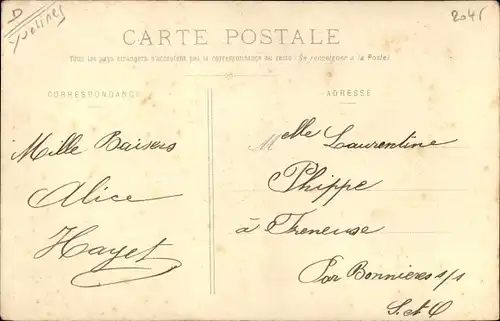 D
Yvelines
2045
CARTE POSTALE
Tous les pays étrangers n'acceptent pas la correspondance au recto (Se renseigner à la Poste)
CORRESPONDANCE
ADRESSE
Mille Baisers
Alice
Hayet
Melle Laurentine
Phippe
à Freneuse
Par Bonnieres s/s
S. et O